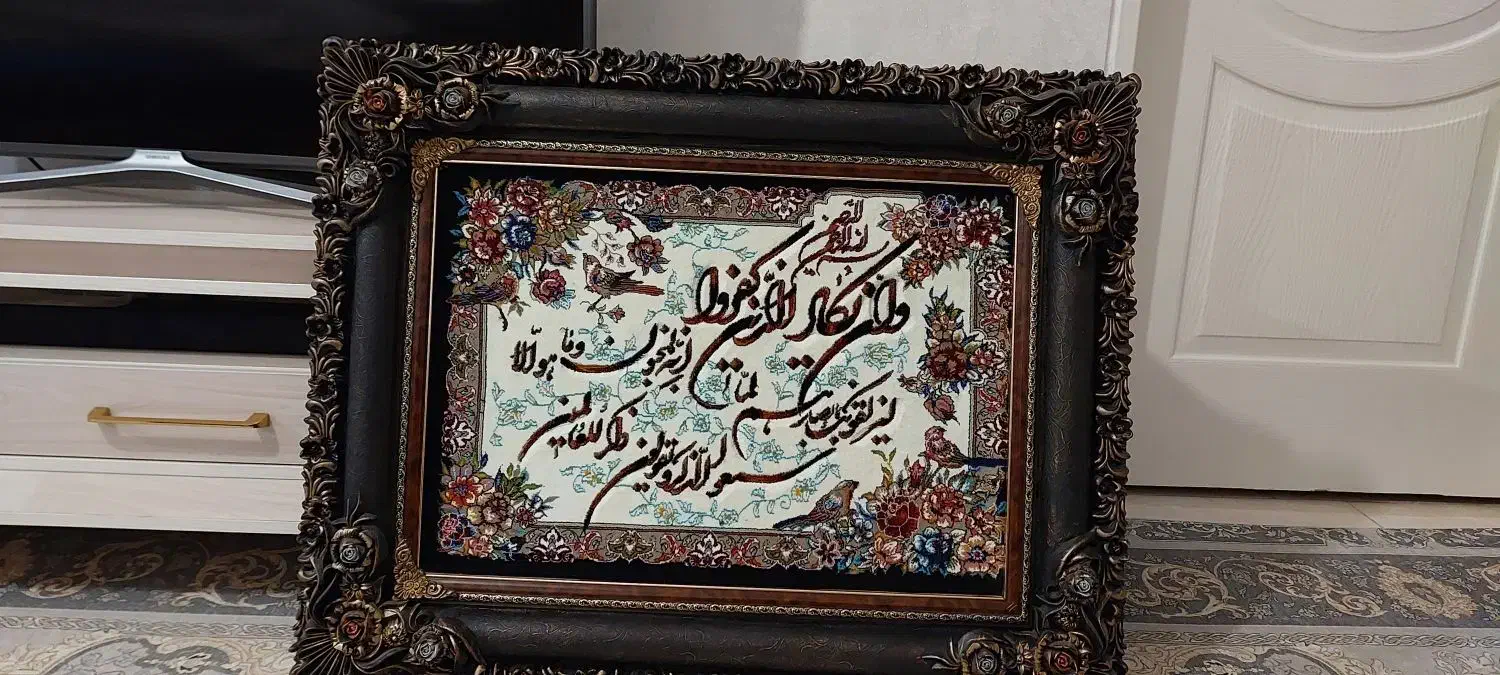 بسم الله الرحمن الرحیم
وان یکاد الذین کفروا
لیزلقونک بابصارهم لما
سمعوا الذکر ویقولون
انه لمجنون وما هو الا
ذکر للعالمین
SAMSUNG